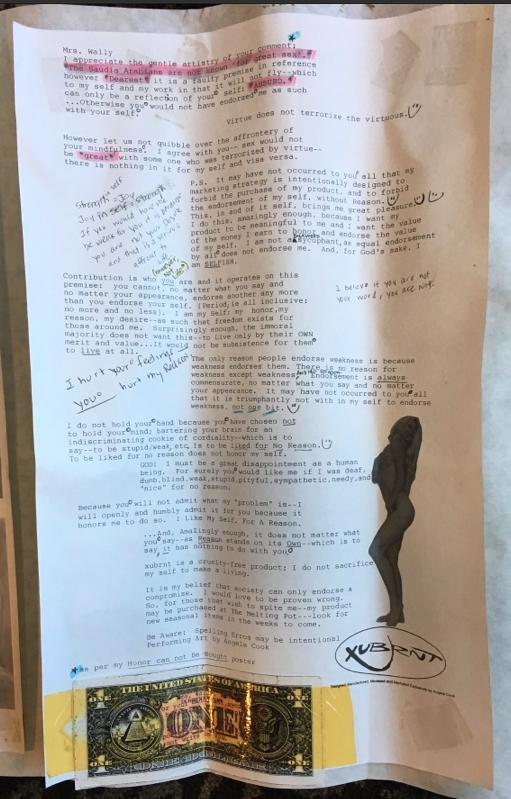 Mrs. Wally
I appreciate the gentle artistry of your comment:
"The Saudia Arabians are not known for great sex".
However "Dearest" it is a faulty premise in reference
to myself and my work in that it will not fly--which
can only be a reflection of your self: "ABSURD."
...Otherwise you would not have endorsed me as such
with your self.
Virtue does not terrorize the virtuous.
However let us not quibble over the affrontery of
your mindfulness. I agree with you-- sex would not
be "great" with some one who was terrorized by virtue--
there is nothing in it for my self and visa versa.
P.S. It may have not occurred to you all that my
marketing strategy is intentionally designed to
forbid the purchase of my product, and to forbid
the endorsement of my self, without Reason.
This, is and of it self, brings me great pleasure.
I do this, amazingly enough, because I want my
product to be meaningful to me and I want the value
of the money I earn to honor and endorse the value
of my self. I am not a sycophant, as equal endorsement
by all does not endorse me. And, for God's sake, I
am SELFISH.
Strength
Joy in self = strength
If you would have me
be weak for you
you are not
and that is
Contribution is who you are and it operates on this
premise: you cannot, no matter what you say and
no matter your appearance, endorse another any more
than you endorse your self. (Period, ie all inclusive;
no more and no less). I am my Self: my honor, my
reason, my desire--as such that freedom exists for
those around me. Surprisingly enough, the immoral
majority does not want this--to Live only by their OWN
merit and value...It would not be subsistence for them
to live at all.
I believe if you are not
your word, you are not.
I hurt your feelings
you hurt my Reason
The only reason people endorse weakness is because
weakness endorses them. There is no reason for
weakness except weakness. Endorsement is always
commensurate, no matter what you say and no matter
your appearance. It may have not occurred to you all
that it is triumphantly not with in my self to endorse
weakness, not one bit.
I do not hold your hand because you have chosen not
to hold your mind; bartering your brain for an
indiscriminating cookie of cordiality--which is to
say--to be stupid/weak, etc. is to be liked for No Reason.
To be liked for no reason does not honor my self.
GOD! I must be a great disappointment as a human
being. For surely you would like me if I was deaf,
dumb, blind, weak, stupid, pityful, sympathetic, needy, and
"nice" for no reason.
Because you will not admit what my "problem" is--I
will openly and humbly admit it for you because it
honors me to do so. I Like My Self, For A Reason.
...And, Amazingly enough, it does not matter what
you say--as Reason stands on its Own--which is to
say, it has nothing to do with you.
xubrnt is a cruelty-free product: I do not sacrifice
my self to make a living.
It is my belief that society can only endorse a
compromise. I would love to be proven wrong.
So, for those that wish to spite me--my product
may be purchased at The Melting Pot---look for
new seasonal items in the weeks to come.
Be Aware: Spelling Erros may be intentional
Performing Art by Angela Cook
XUBRNT
*as per my Honor can not Be Bought poster
THE UNITED STATES OF AMERICA
ONE